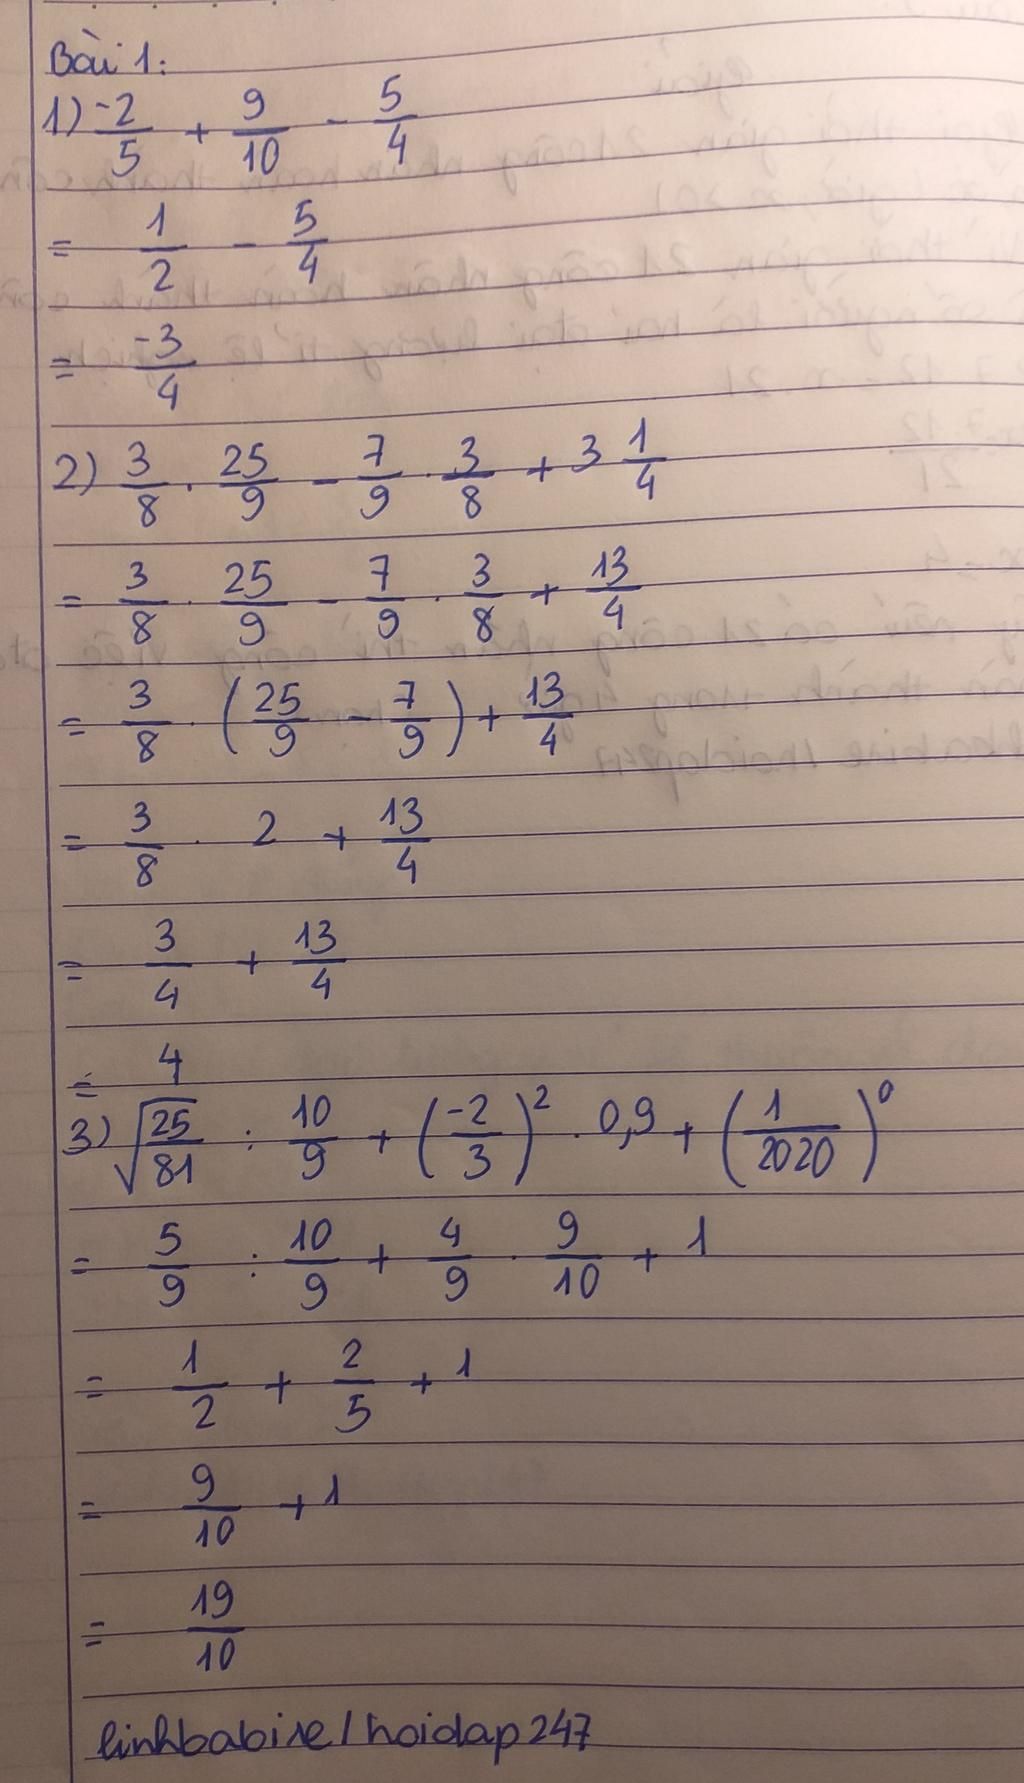 Bài 1:
1) -2/5 + 9/10 - 5/4
= 1/2 - 5/4
= -3/4
2) 3/8 . 25/9 - 7/9 . 3/8 + 3 1/4
= 3/8 . 25/9 - 7/9 . 3/8 + 13/4
= 3/8 . (25/9 - 7/9) + 13/4
= 3/8 . 2 + 13/4
= 3/4 + 13/4
= 4
3) √(25/81) : 10/9 + (-2/3)² . 0,9 + (1/2020)⁰
= 5/9 : 10/9 + 4/9 . 9/10 + 1
= 1/2 + 2/5 + 1
= 9/10 + 1
= 19/10
linhbabine/hoidap247